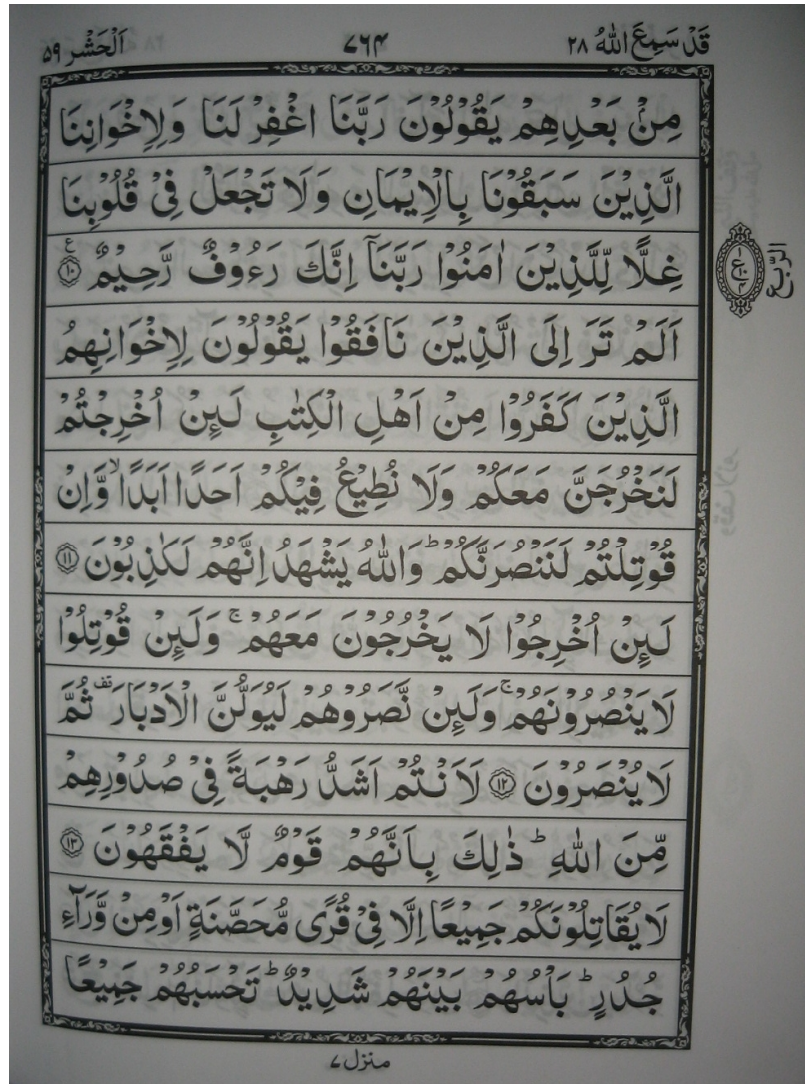 قَدْ سَمِعَ اللهُ ۲۸ ۷۶۴ اَلْحَشْر ۵۹
مِنْۢ بَعْدِهِمْ يَقُوْلُوْنَ رَبَّنَا اغْفِرْ لَنَا وَلِاِخْوَانِنَا
الَّذِيْنَ سَبَقُوْنَا بِالْاِيْمَانِ وَلَا تَجْعَلْ فِيْ قُلُوْبِنَا
غِلًّا لِّلَّذِيْنَ اٰمَنُوْا رَبَّنَاۤ اِنَّكَ رَءُوْفٌ رَّحِيْمٌ ۧ ﴿۱۰﴾
الرّبع
ع
اَلَمْ تَرَ اِلَى الَّذِيْنَ نَافَقُوْا يَقُوْلُوْنَ لِاِخْوَانِهِمُ
الَّذِيْنَ كَفَرُوْا مِنْ اَهْلِ الْكِتٰبِ لَئِنْ اُخْرِجْتُمْ
لَنَخْرُجَنَّ مَعَكُمْ وَلَا نُطِيْعُ فِيْكُمْ اَحَدًا اَبَدًا ۙ وَّاِنْ
قُوْتِلْتُمْ لَنَنْصُرَنَّكُمْ ؕ وَاللهُ يَشْهَدُ اِنَّهُمْ لَكٰذِبُوْنَ ﴿۱۱﴾
لَئِنْ اُخْرِجُوْا لَا يَخْرُجُوْنَ مَعَهُمْ ۚ وَلَئِنْ قُوْتِلُوْا
لَا يَنْصُرُوْنَهُمْ ۚ وَلَئِنْ نَّصَرُوْهُمْ لَيُوَلُّنَّ الْاَدْبَارَ قف ثُمَّ
لَا يُنْصَرُوْنَ ﴿۱۲﴾ لَاَنْتُمْ اَشَدُّ رَهْبَةً فِيْ صُدُوْرِهِمْ
مِّنَ اللهِ ؕ ذٰلِكَ بِاَنَّهُمْ قَوْمٌ لَّا يَفْقَهُوْنَ ﴿۱۳﴾
لَا يُقَاتِلُوْنَكُمْ جَمِيْعًا اِلَّا فِيْ قُرًى مُّحَصَّنَةٍ اَوْ مِنْ وَّرَآءِ
جُدُرٍ ؕ بَاْسُهُمْ بَيْنَهُمْ شَدِيْدٌ ؕ تَحْسَبُهُمْ جَمِيْعًا
منزل ۷